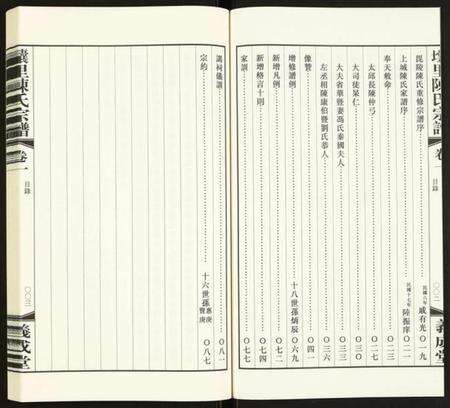 壤里陳氏宗譜 卷一 目錄 〇〇二 義成堂
毘陵陳氏重修宗譜序 民國八年 咸有光 〇一九
上城陳氏家譜序 民國十七年 陸振庠 〇二一
奉天敕命 〇二三
太邱長陳仲弓 〇三一
大司徒晁仁 〇三二
大夫省華暨妻馮氏秦國夫人 〇三三
左丞相陳康伯暨劉氏恭人 〇三六
像贊 〇四一
增修譜例 十八世孫炳辰 〇六九
新增凡例 〇七二
新增格言十則 〇七四
家訓 〇七七
講約儀節 〇八一
宗約 十六世孫 惠庚 賢庚 〇八七
壤里陳氏宗譜 卷一 目錄 〇〇三 義成堂